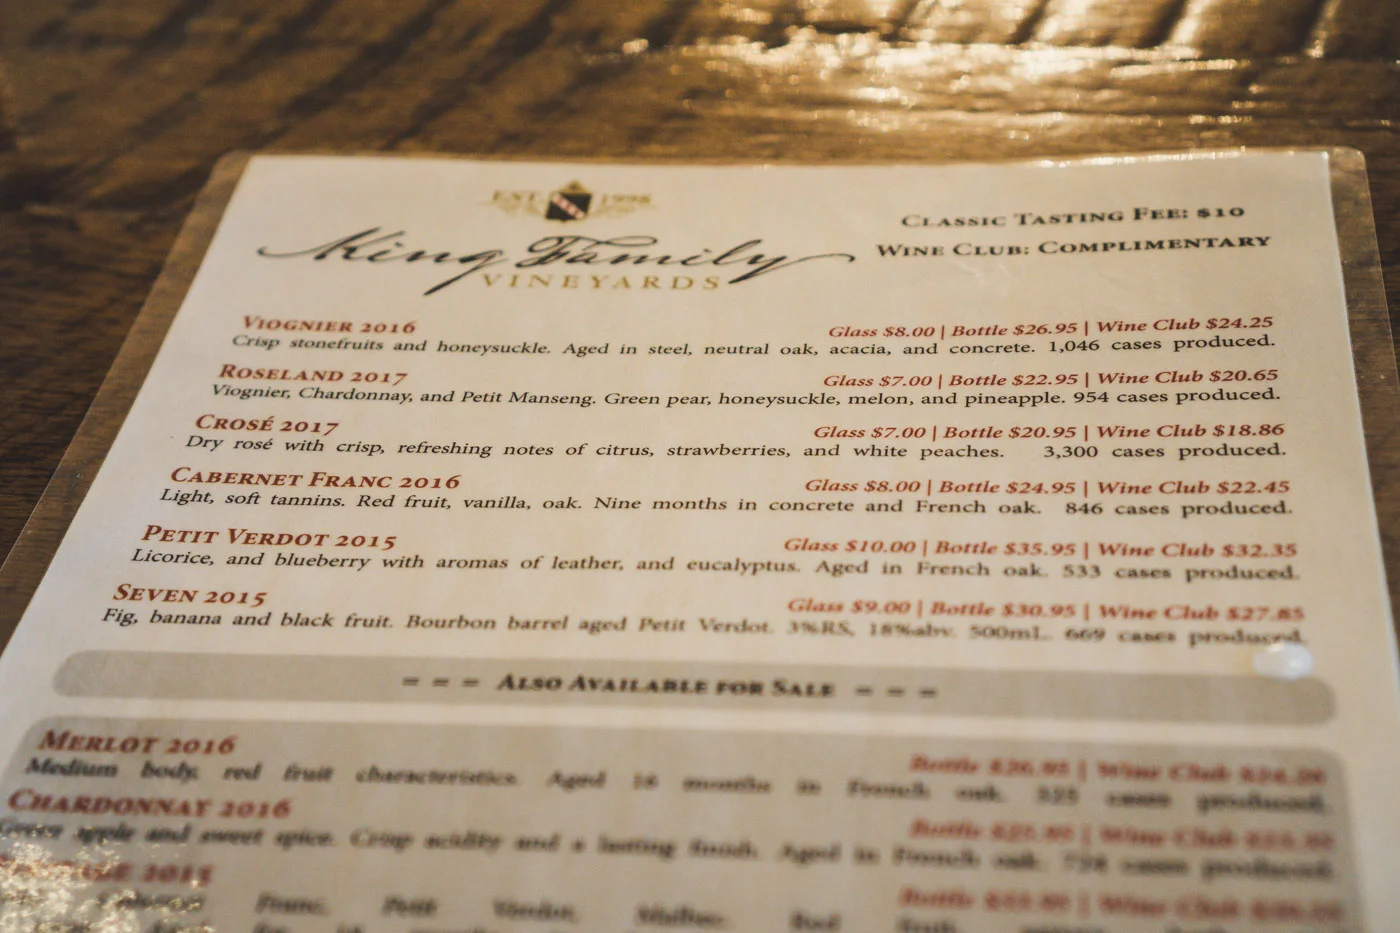 EST. 1998
King Family
VINEYARDS
CLASSIC TASTING FEE: $10
WINE CLUB: COMPLIMENTARY
VIOGNIER 2016 Glass $8.00 | Bottle $26.95 | Wine Club $24.25
Crisp stonefruits and honeysuckle. Aged in steel, neutral oak, acacia, and concrete. 1,046 cases produced.
ROSELAND 2017 Glass $7.00 | Bottle $22.95 | Wine Club $20.65
Viognier, Chardonnay, and Petit Manseng. Green pear, honeysuckle, melon, and pineapple. 954 cases produced.
CROSÉ 2017 Glass $7.00 | Bottle $20.95 | Wine Club $18.86
Dry rosé with crisp, refreshing notes of citrus, strawberries, and white peaches. 3,300 cases produced.
CABERNET FRANC 2016 Glass $8.00 | Bottle $24.95 | Wine Club $22.45
Light, soft tannins. Red fruit, vanilla, oak. Nine months in concrete and French oak. 846 cases produced.
PETIT VERDOT 2015 Glass $10.00 | Bottle $35.95 | Wine Club $32.35
Licorice, and blueberry with aromas of leather, and eucalyptus. Aged in French oak. 533 cases produced.
SEVEN 2015 Glass $9.00 | Bottle $30.95 | Wine Club $27.85
Fig, banana and black fruit. Bourbon barrel aged Petit Verdot. 3%RS, 18%abv. 500mL. 669 cases produced.
- - - ALSO AVAILABLE FOR SALE - - -
MERLOT 2016 Bottle | Wine Club
Medium body, red fruit characteristics. Aged months in French oak. cases produced.
CHARDONNAY 2016 Bottle | Wine Club
Green apple and sweet spice. Crisp acidity and a lasting finish. Aged in French oak. cases produced.
Bottle | Wine Club
Franc, Petit Verdot, Malbec. Red fruit,